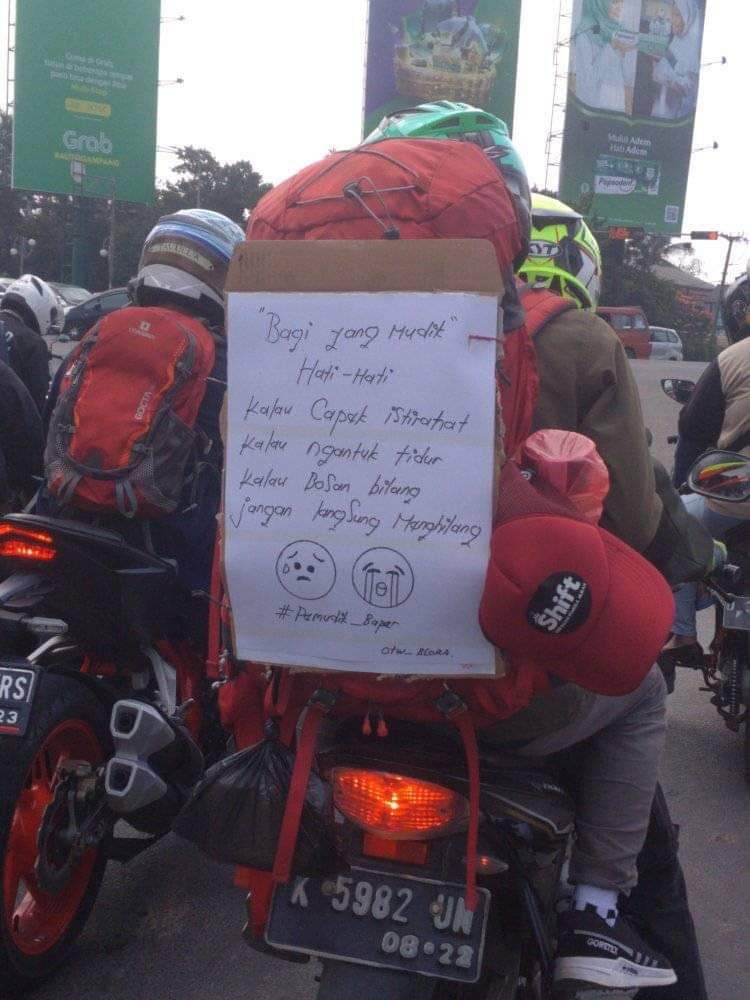 Grab
Mulut Adem
Hati Adem
Pepsodent
KYT
BOCTA
"Bagi yang Mudik"
Hati-Hati
Kalau Capek istirahat
Kalau ngantuk tidur
Kalau Bosan bilang
jangan langsung Menghilang
#Pemudik_Baper
otw_BLORA.
Shift
RS
23
K 5982 UN
08·22